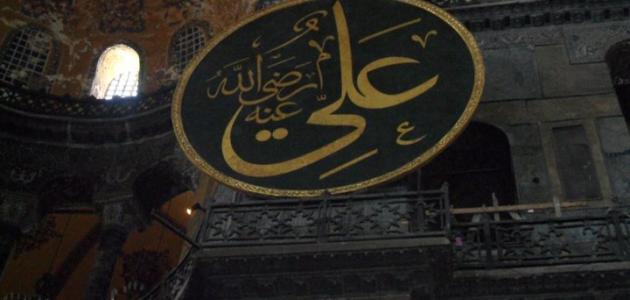 علي رضي الله عنه